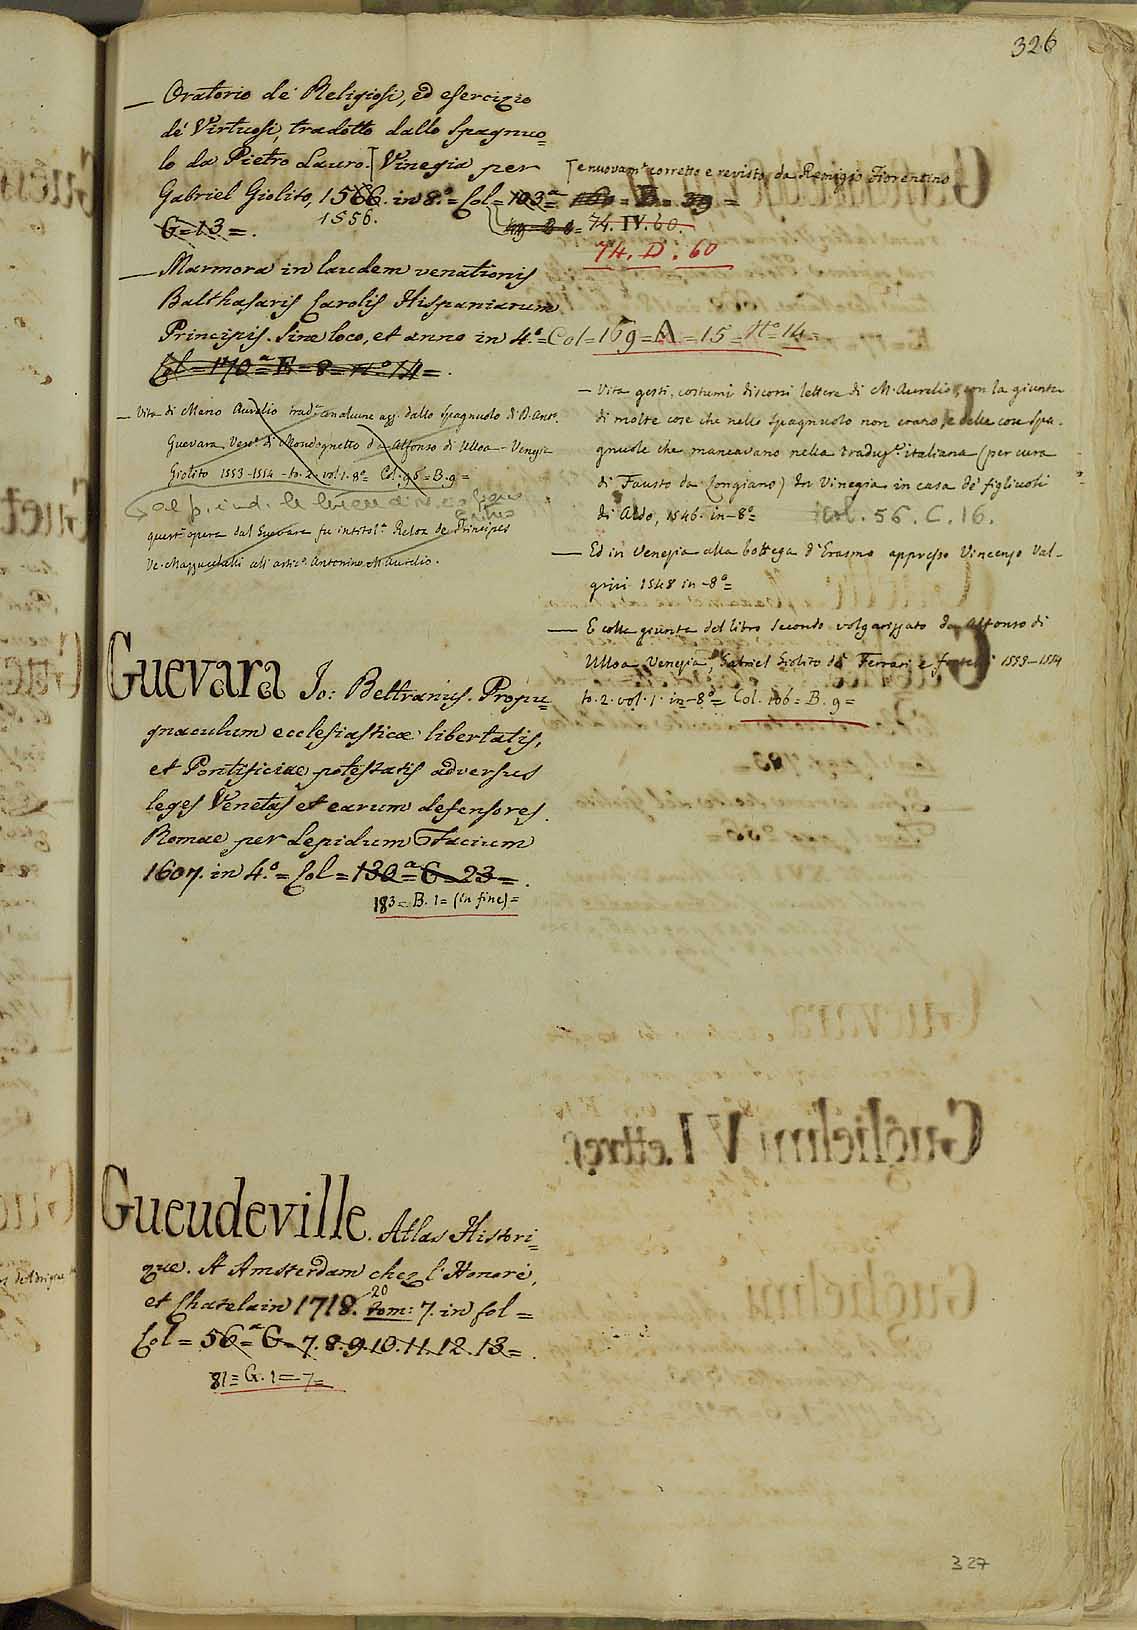 326
— Oratorio de' Religiosi, ed esercizio
de' Virtuosi, tradotto dallo Spagnuo=
lo da Pietro Lauro. [Vinegia per
[e nuovam.e corretto e revisto da Remigio Fiorentino
Gabriel Giolito, 1566. in 8.º = Col = 103.ª
1556.
G=13=.
74. IV. 60.
74. D. 60
— Marmora in laudem venationis
Balthasaris Carolis Hispaniarum
Principis. Sine loco, et anno in 4.º = Col = 169 = A = 15 = Nº 14 =
Col = 170ª = E = 8 = nº 14 = .
— Vita di Marco Aurelio trad.ª con alcune agg. dallo Spagnuolo di D. Ant.
Guevara Vesc.º di Mondognetto da Alfonso di Ulloa - Venezia
Giolito 1553-1554 - to. 2. vol. 1. 8º Col. 95 = B. 9 =
quest'opera dal Guevara fu intitol.ª Relox de Principes
Ve. Mazzuchelli all'artic.º Antonino M. Aurelio.
— Vita gesti, costumi discorsi lettere di M. Aurelio, con la giunta
di molte cose che nello Spagnuolo non erano, e delle cose spa-
gnuole che mancavano nella traduz.e italiana (per cura
di Fausto da Longiano) In Vinegia in casa de' figliuoli
di Aldo, 1546. in-8º = Col. 56. C. 16.
— Ed in Venezia alla bottega d'Erasmo appresso Vincenzo Val-
grisi 1548 in-8º =
— E colla giunta del libro secondo volgarizzato da Alfonso di
Ulloa Venezia, Gabriel Giolito de' Ferrari e fratelli 1553-1554
to. 2. vol. 1. in-8º = Col. 106 = B. 9 =
Guevara Jo: Beltranius. Propu=
gnaculum ecclesiasticæ libertatis,
et Pontificiae potestatis adversus
leges Venetas et earum defensores.
Romae per Lepidum Facium
1607. in 4.º = Col = 130ª = G = 23 = .
183 = B. 1 = (in fine) =
Gueudeville. Atlas Histori=
que. A Amsterdam chez l'Honoré,
et Chatelain 1718.20 Tom: 7. in fol =
Col = 56=ª G = 7. 8. 9. 10. 11. 12. 13 = .
81 = G. 1 = 7 =
327